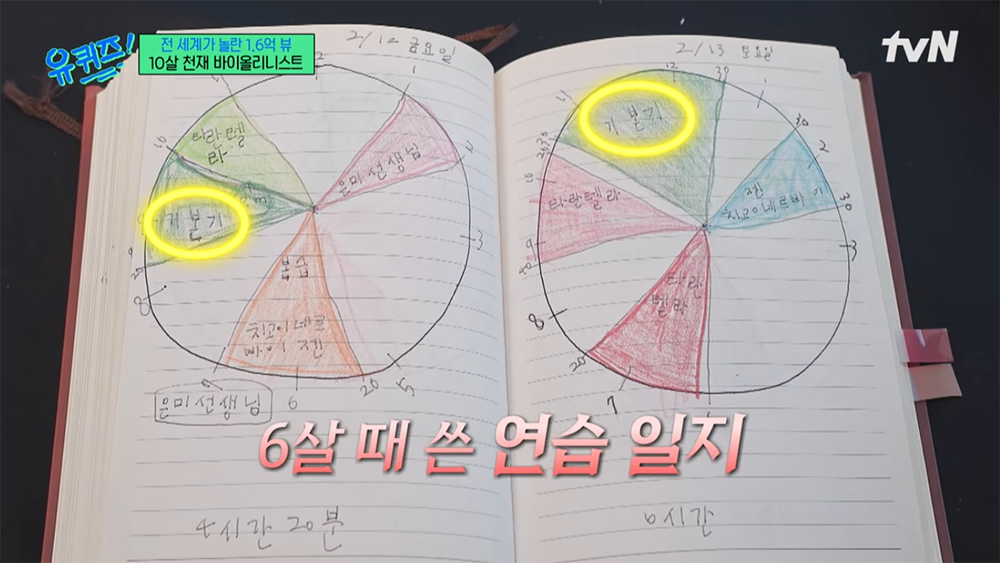 유퀴즈!
전 세계가 놀란 1.6억 뷰
10살 천재 바이올리니스트
tvN
2/12 금요일
1
2
3
5
20
6
7
8
20
9
10
은미선생님
타란텔
라
기본기
복습
치고이네르
바이젠
은미선생님
4시간 20분
2/13 토요일
11
12
30
1
30
2
30
3
7
20
8
9
10
기본기
타란텔라
젠
치고이네르바이
타란
텔라
6시간
6살 때 쓴 연습 일지